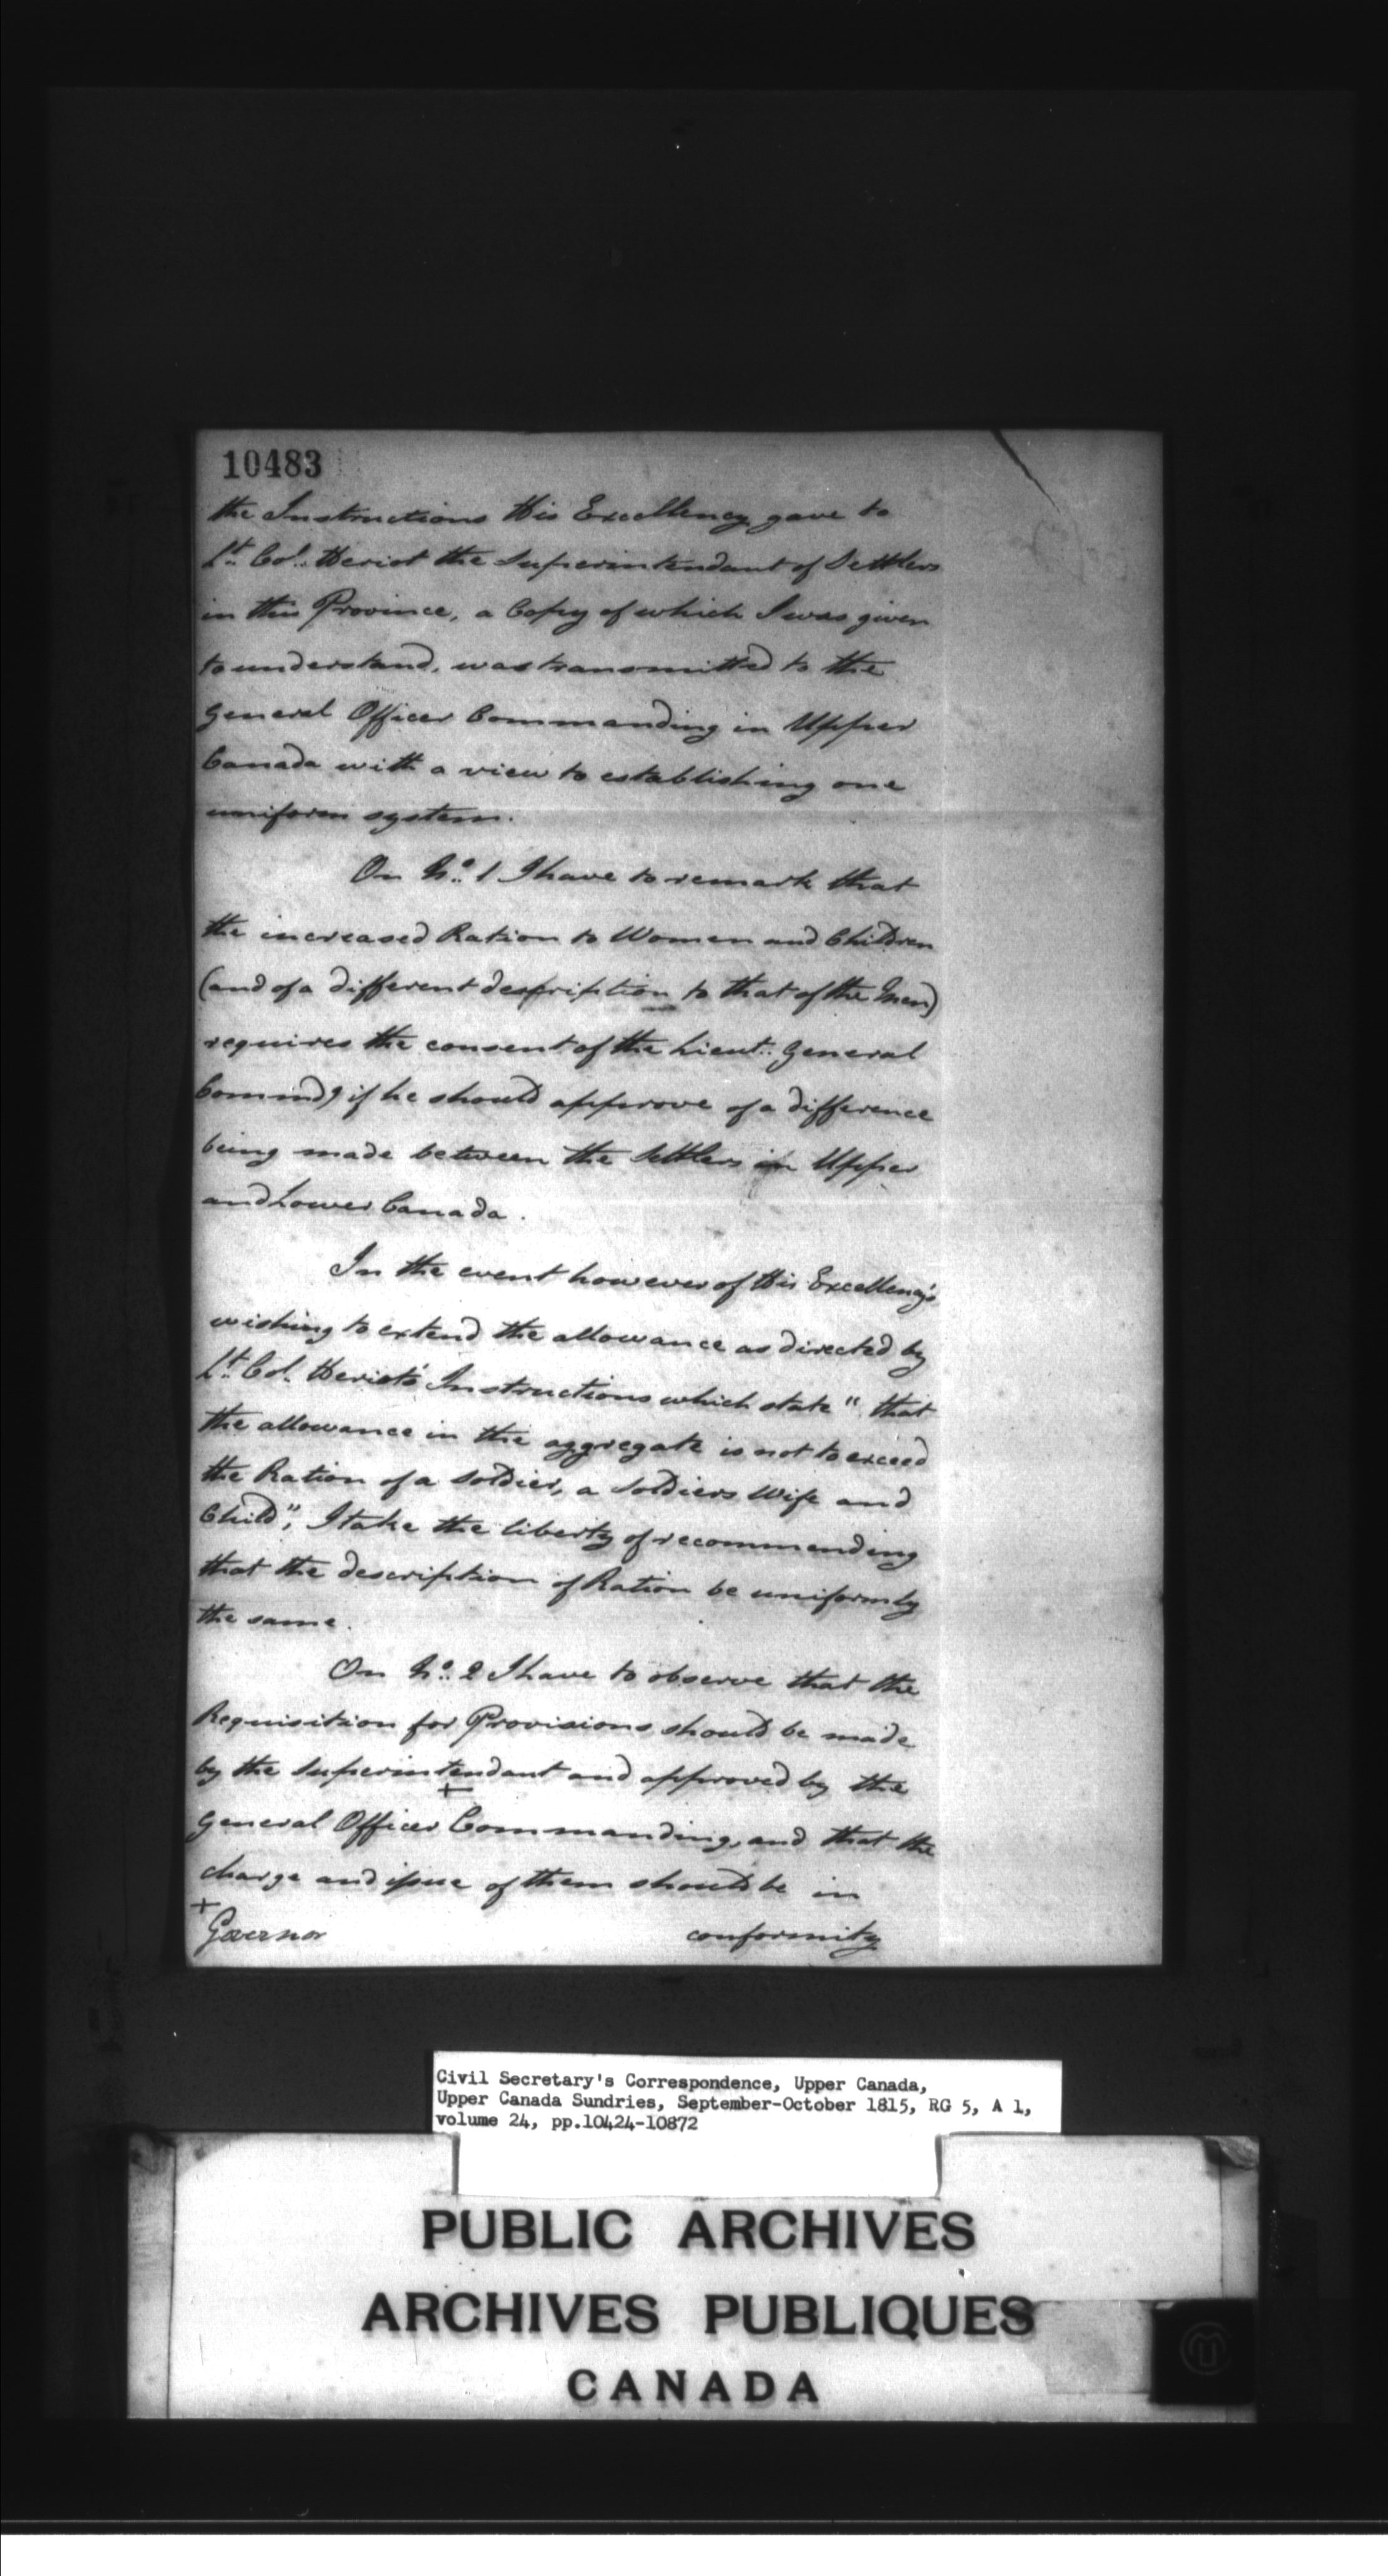 10483
the Instructions His Excellency gave to
Lt. Col. Heriot the Superintendant of Settlers
in this Province, a Copy of which I was given
to understand, was transmitted to the
General Officer Commanding in Upper
Canada with a view to establishing one
uniform system.
On No. 1 I have to remark that
the increased Ration to Women and Children
(and of a different description to that of the Men)
requires the consent of the Lieut. General
Commdg if he should approve of a difference
being made between the Settlers in Upper
and Lower Canada.
In the event however of His Excellency's
wishing to extend the allowance as directed by
Lt. Col. Heriot's Instructions which state "that
the allowance in the aggregate is not to exceed
the Ration of a Soldier, a Soldiers Wife and
Child", I take the liberty of recommending
that the description of Ration be uniformly
the same.
On No. 2 I have to observe that the
Requisition for Provisions should be made
by the Superintendant and approved by the
+
General Officer Commanding, and that the
charge and issue of them should be in
+
Governor conformity
Civil Secretary's Correspondence, Upper Canada,
Upper Canada Sundries, September-October 1815, RG 5, A 1,
volume 24, pp.10424-10872
PUBLIC ARCHIVES
ARCHIVES PUBLIQUES
CANADA